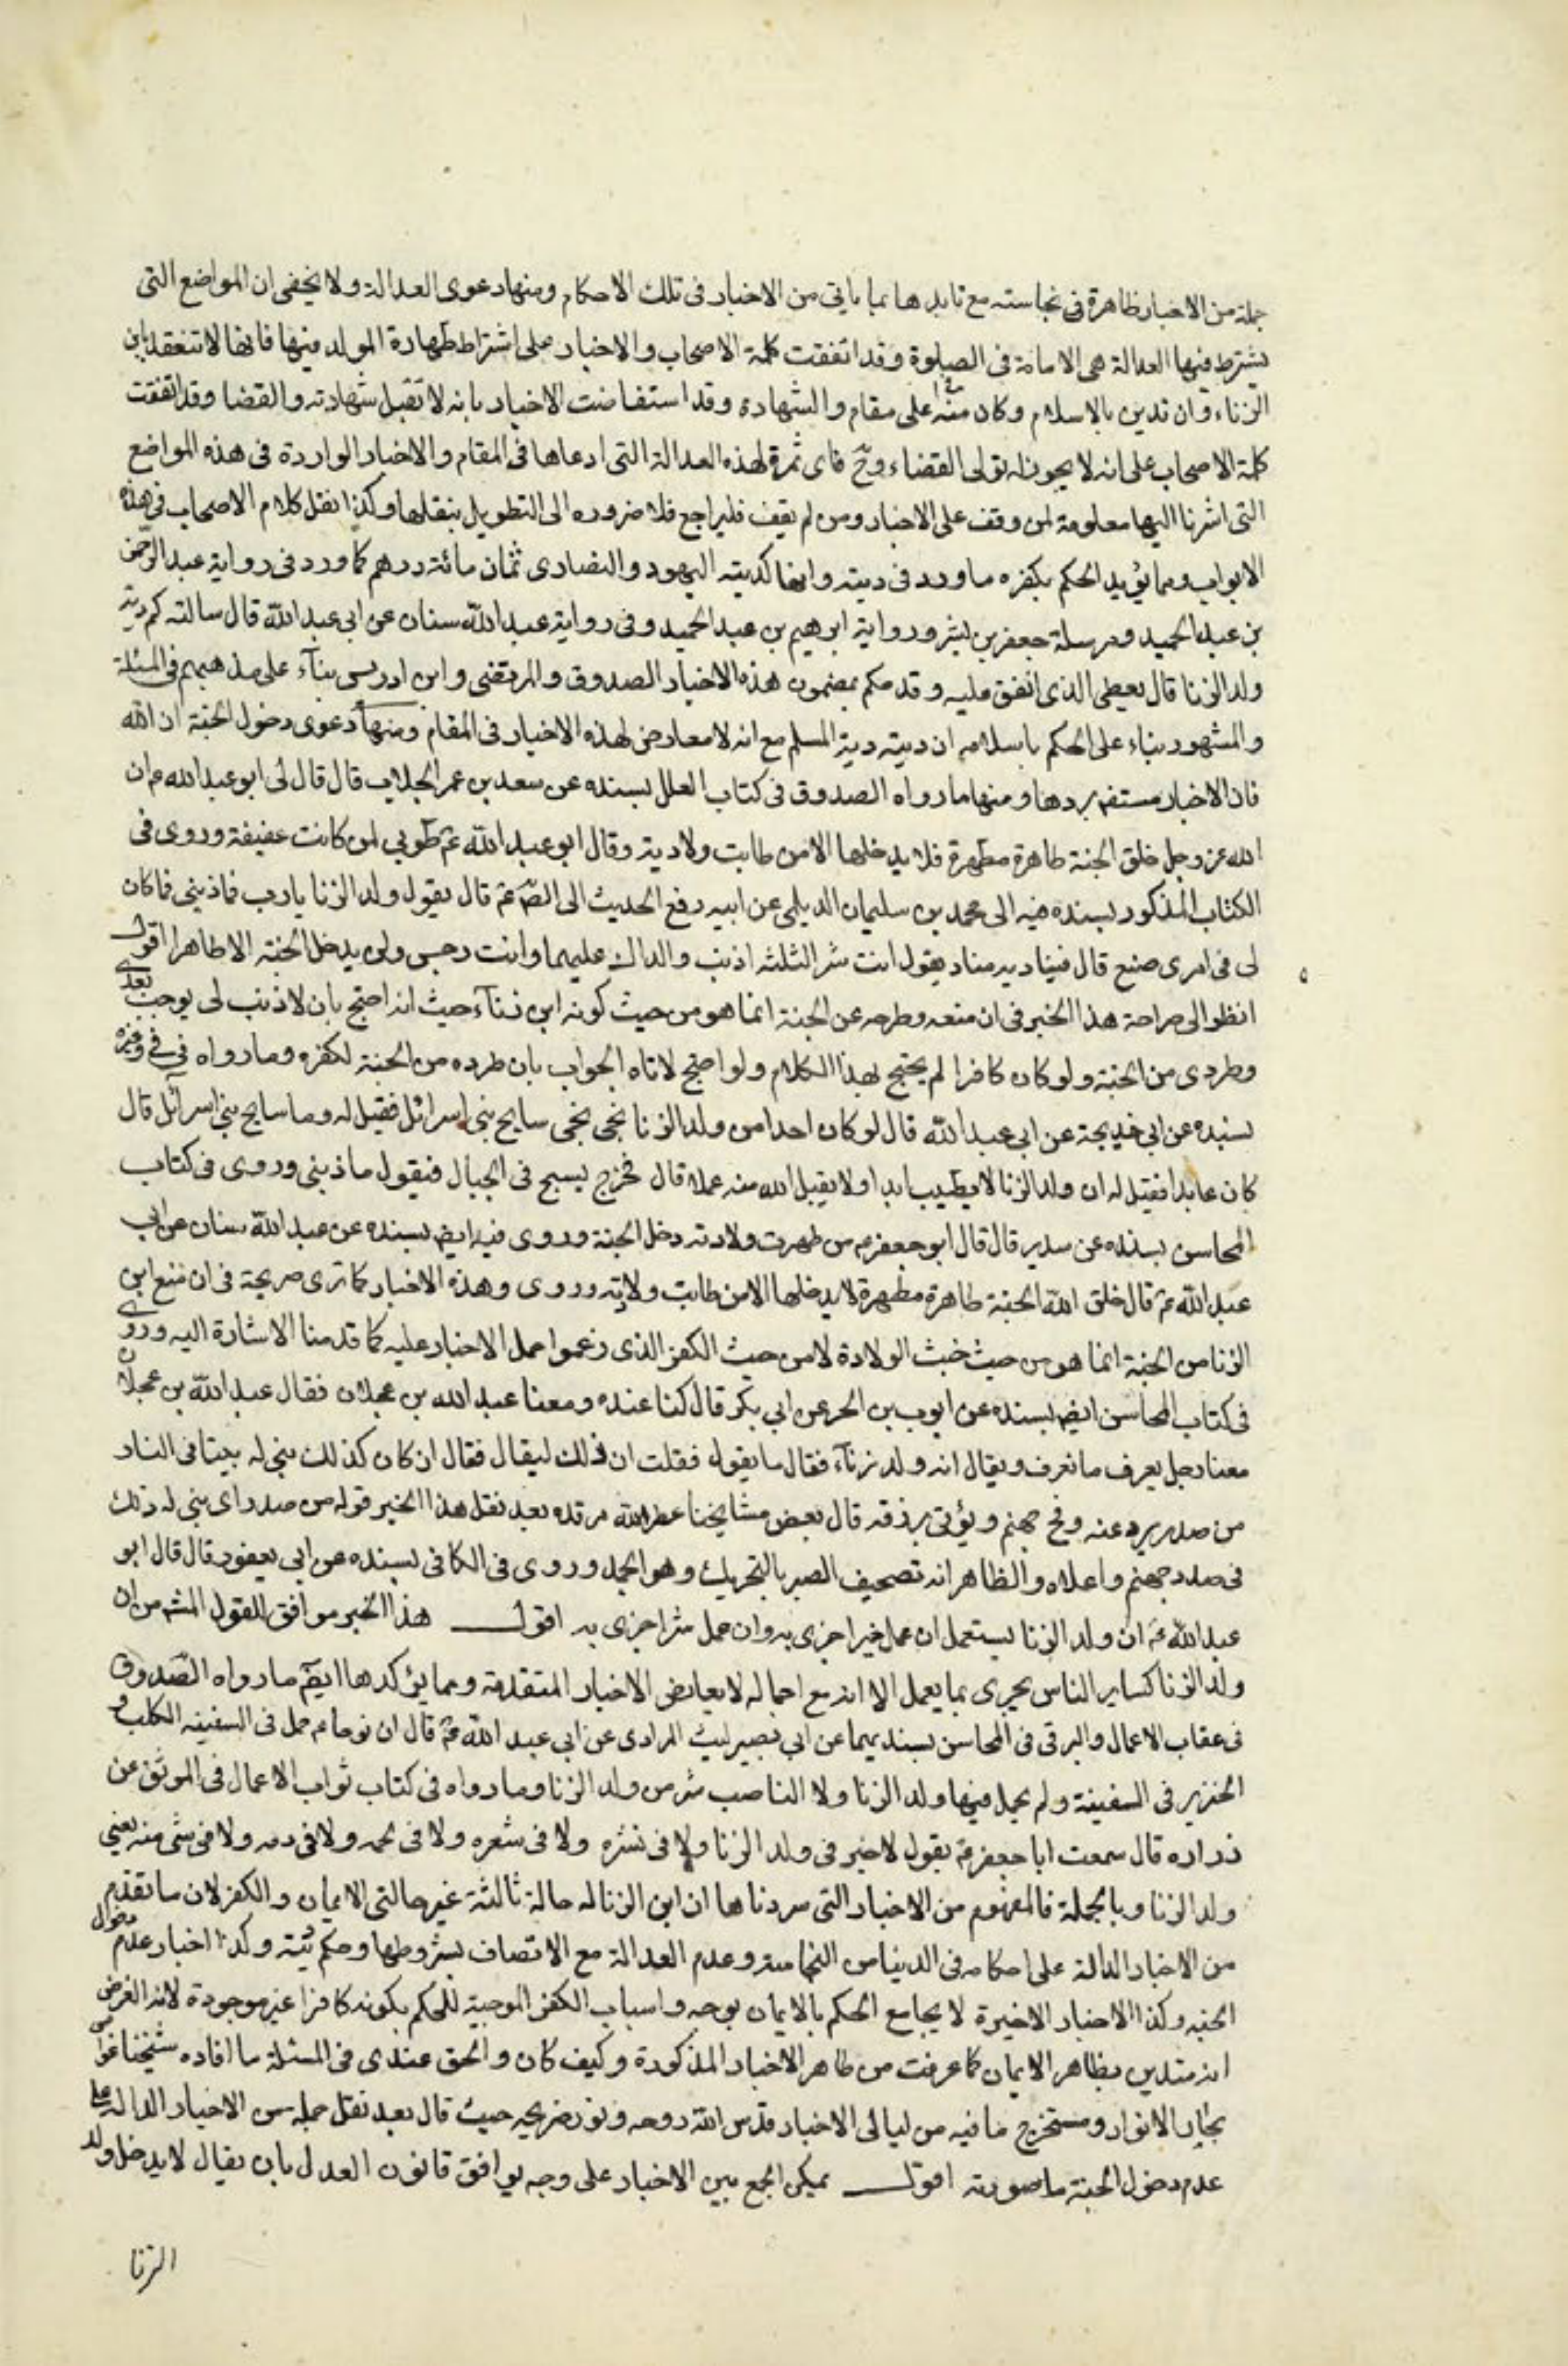 جملة من الاخبار ظاهرة فى نجاسته مع تايدها بما ياتى من الاخبار فى تلك الاحكام ومنها دعوى العدالة ولا يخفى ان المواضع التى
يشترط فيها العدالة هى الامامة فى الصلوة وقد اتفقت كلمة الاصحاب والاخبار على اشتراط طهارة المولد فيها فانها لا تنعقد بابن
الزناء وان تدين بالاسلام وكان منه على مقام والشهادة وقد استفاضت الاخبار بانه لا تقبل شهادته والقضا وقد اتفقت
كلمة الاصحاب على انه لا يجوز له تولى القضاء وح فاى ثمرة لهذه العدالة التى ادعاها فى المقام والاخبار الواردة فى هذه المواضع
التى اشرنا اليها معلومة لمن وقف على الاخبار ومن لم يقف فليراجع فلا ضروره الى التطويل بنقلها وكذا نقل كلام الاصحاب فى هذه
الابواب ومما يؤيد الحكم بكفره ما ورد فى ديته وانها كديته اليهود والنصارى ثمان مائة درهم كما ورد فى رواية عبد الرحمن
بن عبد الحميد ومرسلة جعفر بن بشير ورواية ابرهيم بن عبد الحميد وفى رواية عبد الله سنان عن ابى عبد الله قال سالته كم دية
ولد الزنا قال يعطى الذى انفق عليه وقد حكم بمضمون هذه الاخبار الصدوق والمرتضى وابن ادريس بناء على مذهبهم فى المسئلة
والمشهور بناء على الحكم باسلامه ان ديته دية المسلم مع انه لا معارض لهذه الاخبار فى المقام ومنها دعوى دخول الجنة ان الله
فان الاخبار مستفيضة بردها ومنها ما رواه الصدوق فى كتاب العلل بسنده عن سعد بن عمر الجلاب قال قال لى ابو عبد الله ع ان
الله عز وجل خلق الجنة طاهرة مطهرة فلا يدخلها الا من طابت ولادته وقال ابو عبد الله ع طوبى لمن كانت عفيفة وروى فى
الكتاب المذكور بسنده فيه الى محمد بن سليمان الديلمى عن ابيه رفع الحديث الى الص ع قال يقول ولد الزنا يارب فما ذنبى فما كان
لى فى امرى صنع قال فيناديه مناد يقول انت شر الثلثة اذنب والداك عليهما وانت رجس ولن يدخل الجنة الا طاهر اقول
انظر الى صراحة هذا الخبر فى ان منعه وطرحه عن الجنة انما هو من حيث كونه ابن زناء حيث انه احتج بان لا ذنب لى يوجب بعدى
وطردى من الجنة ولو كان كافرا لم يحتج بهذا الكلام ولو احتج لاتاه الجواب بان طرده من الجنة لكفره وما رواه فى فى وغيره
بسنده عن ابى خديجة عن ابى عبد الله قال لو كان احدا من ولد الزنا نجى نجى سايح بنى اسرائل فقيل له وما سايح بنى اسرآئل قال
كان عابدا فقيل له ان ولد الزنا لا يطيب ابدا ولا يقبل الله منه عملا قال فخرج يسيح فى الجبال فيقول ما ذنبى وروى فى كتاب
المحاسن بسنده عن سدير قال قال ابو جعفر ع من طهرت ولادته دخل الجنة وروى فيه ايض بسنده عن عبد الله سنان عن ابى
عبد الله ع قال خلق الله الجنة طاهرة مطهرة لا يدخلها الا من طابت ولايته وروى وهذه الاخبار كما ترى صريحة فى ان منع ابن
الزنا من الجنة انما هو من حيث خبث الولادة لا من حيث الكفر الذى زعموا حمل الاخبار عليه كما قدمنا الاشارة اليه وروى
فى كتاب المحاسن ايض بسنده عن ايوب بن الحر عن ابى بكر قال كنا عنده ومعنا عبد الله بن عجلان فقال عبد الله بن عجلان
معنا رجل يعرف ما نعرف ويقال انه ولد زناء فقال ما يقول فقلت ان ذلك ليقال فقال ان كان كذلك بنى له بيتا فى النار
من صدر يرد عنه وهج جهنم ويؤتى برزقه قال بعض مشايخنا عطر الله مرقده بعد نقل هذا الخبر قوله من صدر اى بنى له ذلك
فى صدر جهنم واعلاه والظاهر انه تصحيف الصبر بالتحريك وهو الجمد وروى فى الكافى بسنده عن ابى يعفور قال قال ابو
عبد الله ع ان ولد الزنا يستعمل ان عمل خيرا جزى به وان عمل شرا جزى به اقول هذا الخبر موافق للقول المشهور من ان
ولد الزنا كساير الناس يجرى بما يعمل الا انه مع اجماله لا يعارض الاخبار المتقدمة ومما يؤكدها ايض ما رواه الصدوق
فى عقاب الاعمال والبرقى فى المحاسن بسنديهما عن ابى بصير ليث المرادى عن ابى عبد الله ع قال ان نوحا ع حمل فى السفينه الكلب و
الخنزير فى السفينة ولم يحمل فيها ولد الزنا ولا الناصب شر من ولد الزنا وما رواه فى كتاب ثواب الاعمال فى الموثق عن
زراره قال سمعت ابا جعفر ع يقول لا خير فى ولد الزنا ولا فى بشره ولا فى شعره ولا فى لحمه ولا فى دمه ولا فى شى منه يعنى
ولد الزنا وبالجملة فالمفهوم من الاخبار التى سردناها ان ابن الزنا له حالة ثالثة غير حالتى الايمان والكفر لان ما تقدم
من الاخبار الدالة على احكامه فى الدنيا من النجاسة وعدم العدالة مع الاتصاف بشروطها وحكم ديته وكذا اخبار عدم دخول
الجنه وكذا الاخبار الاخيرة لا يجامع الحكم بالايمان بوجه واسباب الكفر الموجبة للحكم بكونه كافرا غير موجودة لانه الغرض
انه متدين بظاهر الايمان كما عرفت من ظاهر الاخبار المذكورة وكيف كان والحق عندى فى المسئلة ما افاده شيخنا غواص
بحار الانوار ومستخرج ما فيه من ليالى الاخبار قدس الله روحه ونور ضريحه حيث قال بعد نقل جملة من الاخبار الدالة على
عدم دخول الجنة ما صورته اقول يمكن الجمع بين الاخبار على وجه يوافق قانون العدل بان يقال لا يدخل ولد
الزنا